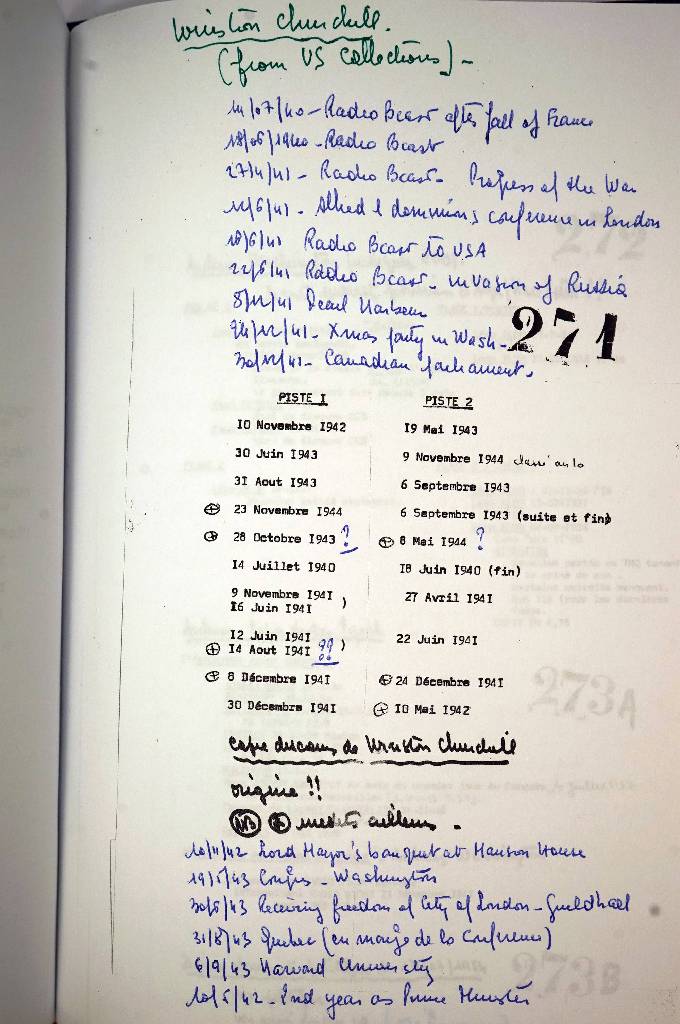 Winston Churchill.
(from US collections) -
14/07/40 - Radio Bcast after fall of France
18/06/1940 - Radio Bcast
27/4/41 - Radio Bcast - Progress of the War
12/6/41 - Allied & dominions conference in London
16/6/41 Radio Bcast to USA
22/6/41 Radio Bcast - invasion of Russia
8/12/41 Pearl Harbour
24/12/41 - Xmas party in Wash -
271
30/12/41 - Canadian parliament.
PISTE I PISTE 2
10 Novembre 1942 19 Mai 1943
30 Juin 1943 9 Novembre 1944
31 Aout 1943 6 Septembre 1943
⊕ 23 Novembre 1944 6 Septembre 1943 (suite et fin)
⊕ 28 Octobre 1943 ? ⊕ 8 Mai 1944 ?
14 Juillet 1940 18 Juin 1940 (fin)
9 Novembre 1941 27 Avril 1941
16 Juin 1941 )
12 Juin 1941 22 Juin 1941
⊕ 14 Aout 1941 ?? )
⊕ 8 Décembre 1941 ⊕ 24 Décembre 1941
30 Décembre 1941 ⊕ 10 Mai 1942
copie discours de Winston Churchill
origine !!
NB ⊕ inédits ailleurs .
10/11/42 Lord Mayor's banquet at Mansion House
19/5/43 Congress - Washington
30/6/43 Receiving freedom of City of London - Guildhall
31/8/43 Quebec (en marge de la Conference)
6/9/43 Harvard University
10/5/42 - 2nd year as Prime Minister
272
273A
273B